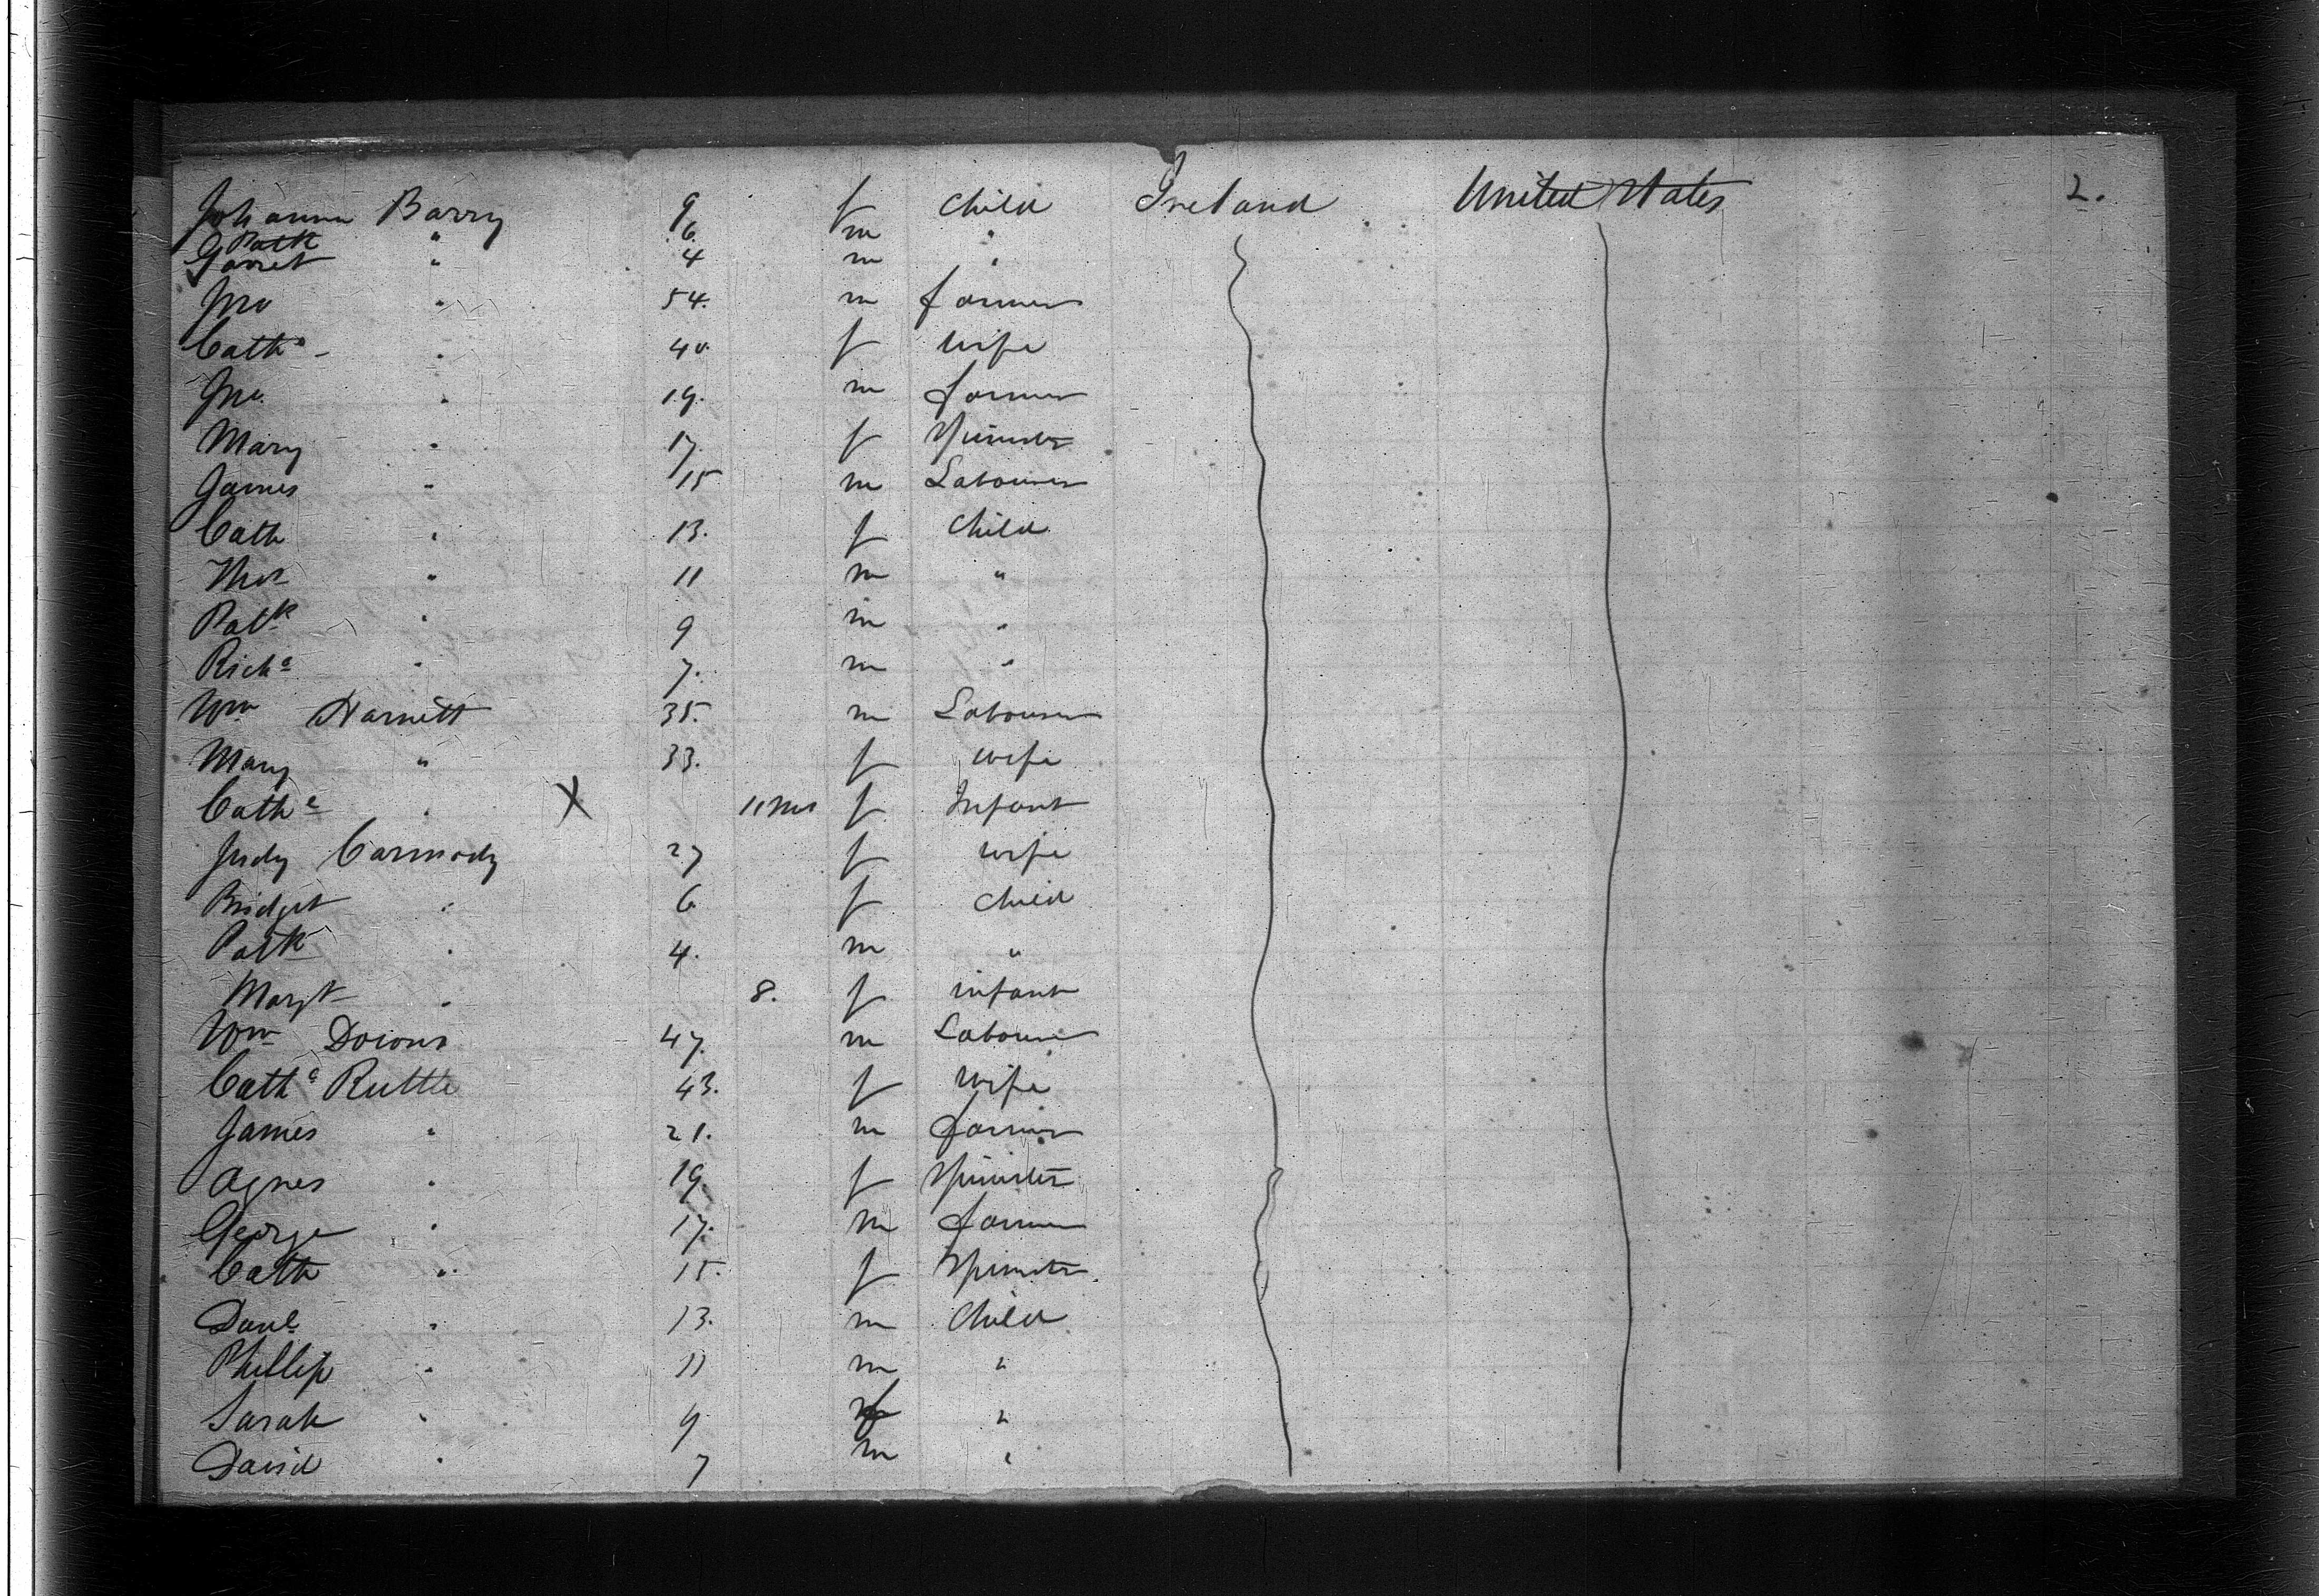 Johanna Barry 9 f Child Ireland United States 2.
Patk " 6. m "
Garret " 4 m "
Jno " 54. m farmer
Cathe " 40 f wife
Jno. " 19. m farmer
Mary " 17. f Spinster
James " 15 m Labourer
Cath " 13. f Child
Thos " 11 m "
Patk " 9 m "
Richd " 7. m "
Wm Harnett 35. m Labourer
Mary " 33. f wife
Cathe " X 11 mos f Infant
Judy Carmody 27 f wife
Bridget " 6 f Child
Patk " 4. m "
Margt " 8. f infant
Wm Downs 47. m Labourer
Cathe Ruttle 43. f wife
James " 21. m farmer
Agnes " 19. f Spinster
George " 17. m farmer
Cath " 15. f Spinster
Danl " 13. m Child
Phillip " 11 m "
Sarah " 9 f "
David " 7 m "